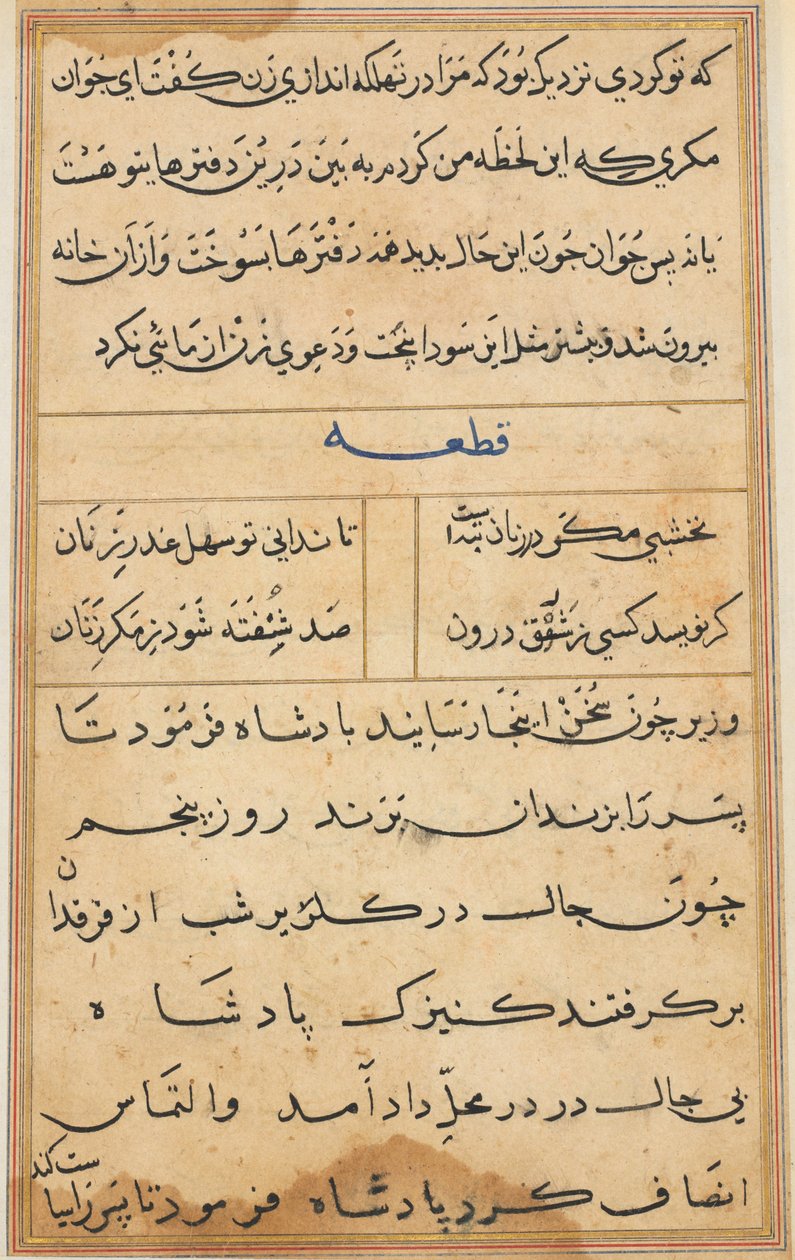 که تو کردي نزدیک بود که مرا در تهلکه اندازي زن کفت اي جوان
مکري که این لحظه من کردم به بین درین دفترها یتو هست
یانه پس جوان جون این حال بدید همه دفترها بسوخت و از آن خانه
بیرون شد و بیشتر مثل این سودا نپخت و دعوي زن از مائي نکرد
قطعه
نخشبي مکر در زنان پیداست
تا ندانی تو سهل غدر زنان
کر نویسد کسي ز شقّ درون
صد شیفته شود ز مکر زنان
وزیر چون سخن اینجا رسانید بادشاه فرمود تا
پسر را بزندان برند روز پنجم
چون جال در کلزیر شب از فرقدان
بر کرفتند کنیزک پادشاه
بي جال در در محلّ داد آمد والتماس
انصاف کرد پادشاه فرمود تا پسر را سیاست کند